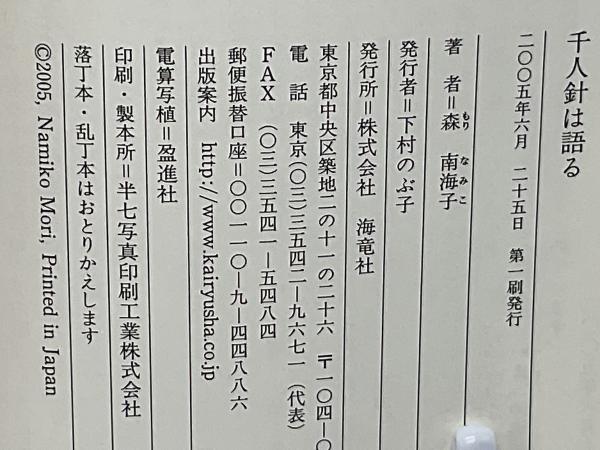 千人針は語る
二〇〇五年六月　二十五日　第一刷発行
著　者＝森　南海子
もり　なみこ
発行者＝下村のぶ子
発行所＝株式会社　海竜社
東京都中央区築地二の十一の二十六　〒一〇四―〇
電　話　東京（〇三）三五四二―九六七一（代表）
ＦＡＸ　（〇三）三五四一―五四八四
郵便振替口座＝〇〇一一〇―九―四四八八六
出版案内　http://www.kairyusha.co.jp
電算写植＝盈進社
印刷・製本所＝半七写真印刷工業株式会社
落丁本・乱丁本はおとりかえします
©2005, Namiko Mori, Printed in Japan